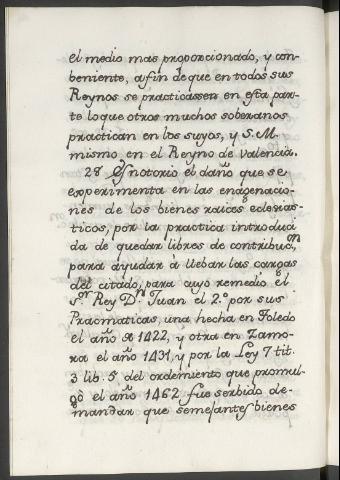 el medio mas proporcionado, y con-
beniente, afin de que en todos sus
Reynos se practicassen en esta par-
te lo que otros muchos soberanos
practican en los suyos, y S. M.
mismo en el Reyno de Valencia.
28 Es notorio el daño que se
experimenta en las enagenacio-
nes de los bienes raices eclesias-
ticos, por la practica introduci-
da de quedar libres de contribu.on
para ayudar à llebar las cargas
del citado, para cuyo remedio el
S.or Rey D.n Juan el 2.º por sus
Pracmaticas, una hecha en Toledo
el año de 1422, y otra en Zamo-
ra el año 1431, y por la Ley 7 tit.
3 lib. 5 del ordemiento que promul-
gò el año 1462 fue serbido de-
mandar que semejantes bienes